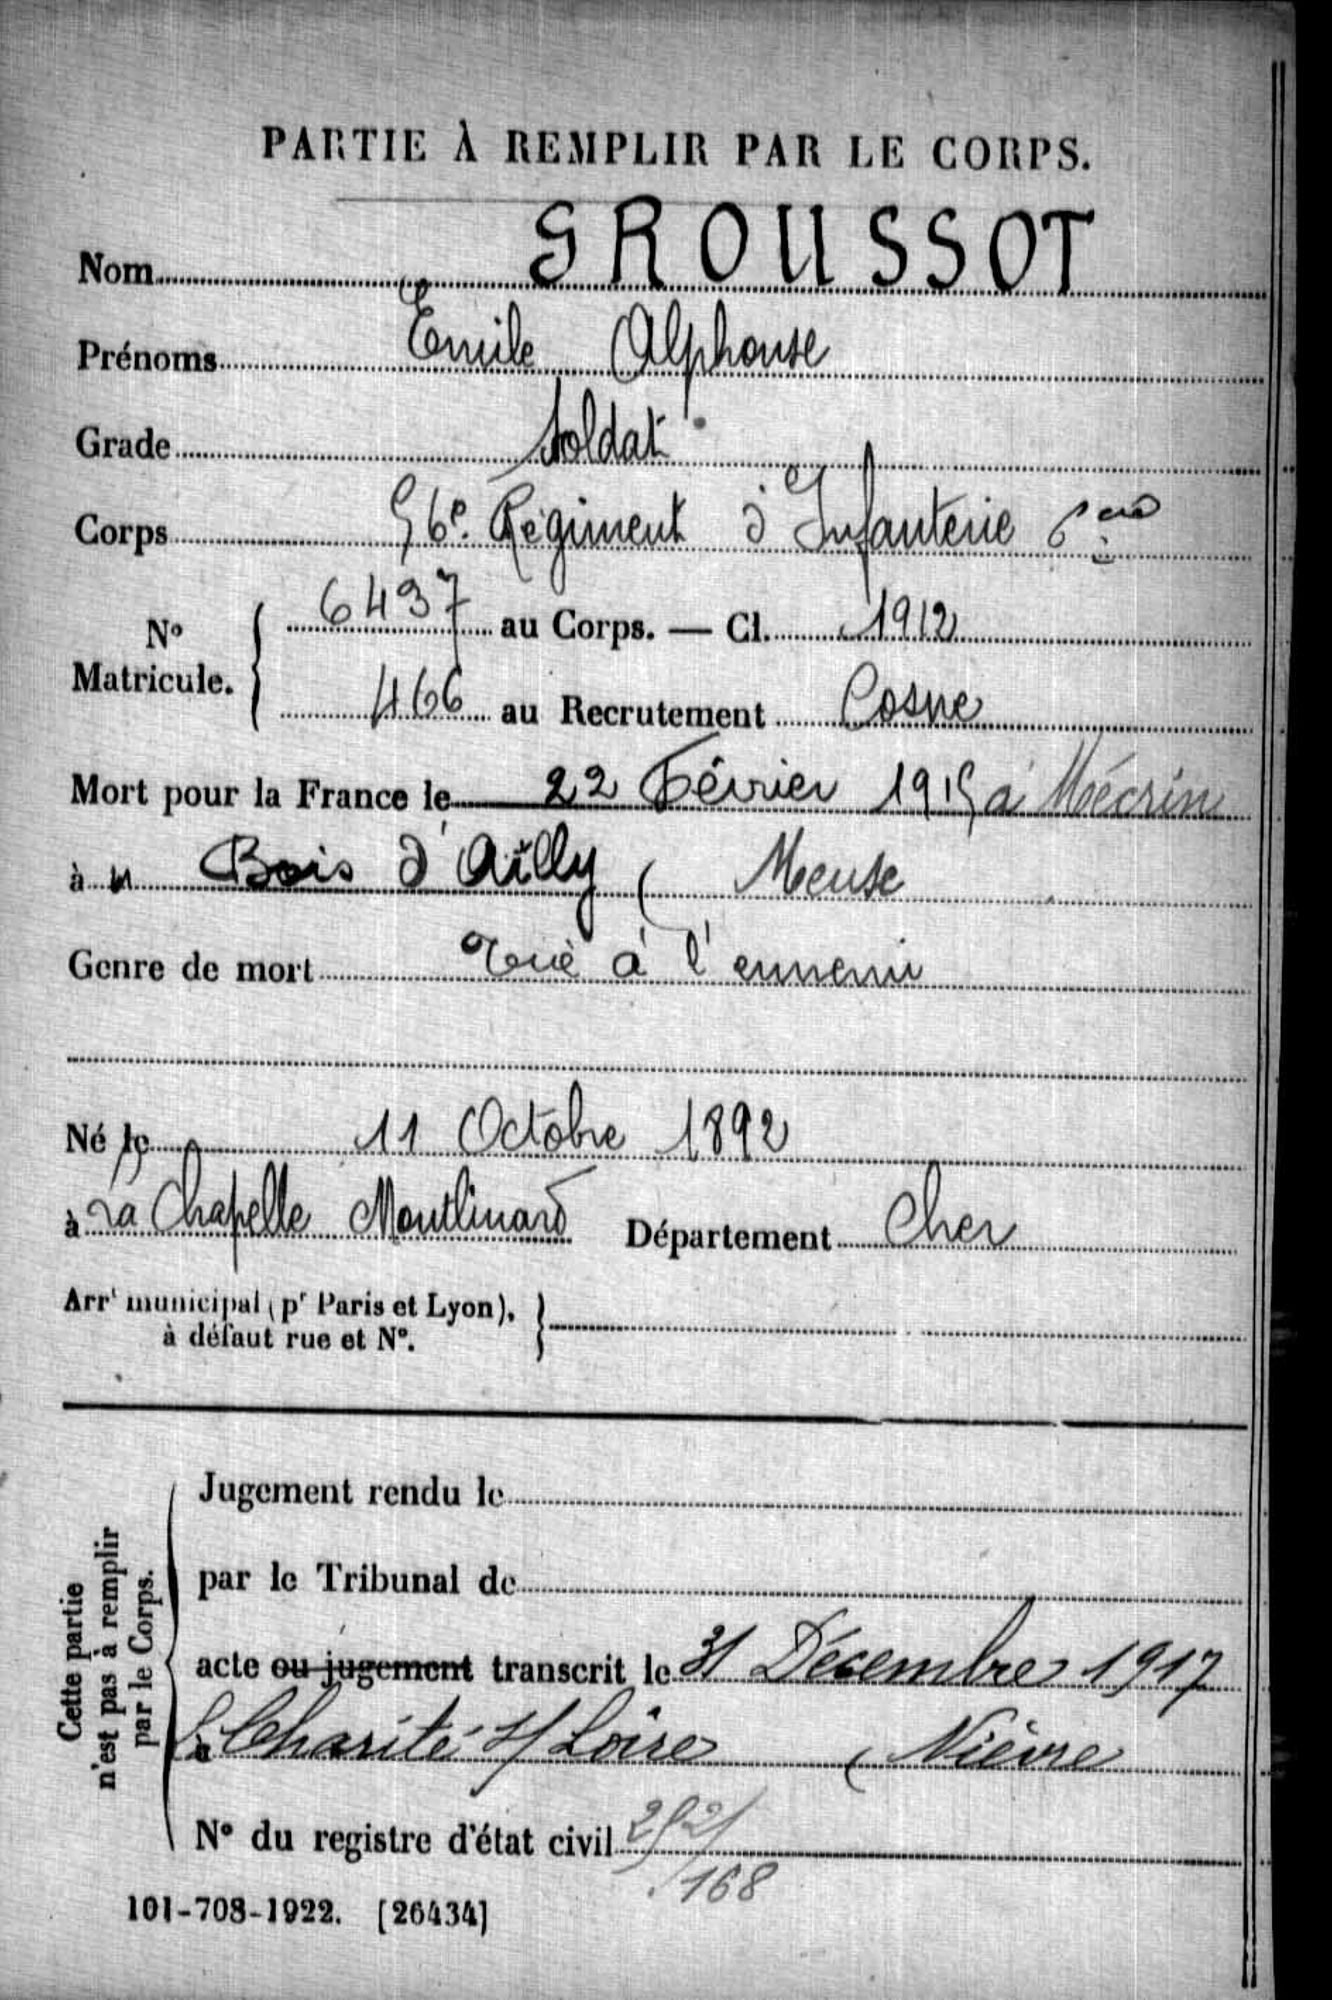 PARTIE À REMPLIR PAR LE CORPS.
Nom GROUSSOT
Prénoms Emile Alphonse
Grade Soldat
Corps 56e Régiment d'Infanterie
N° Matricule. 6437 au Corps. — Cl. 1912
466 au Recrutement Cosne
Mort pour la France le 22 Février 1915 à Mécrin
à Bois d'Ailly ( Meuse
Genre de mort Tué à l'ennemi
Né le 11 Octobre 1892
à La Chapelle Montlinard Département Cher
Arrt municipal (pr Paris et Lyon),
à défaut rue et N°.
Cette partie
n'est pas à remplir
par le Corps.
Jugement rendu le
par le Tribunal de
acte ou jugement transcrit le 31 Décembre 1917
à Charité s/ Loire ( Nièvre
N° du registre d'état civil
168
101-708-1922. [26434]